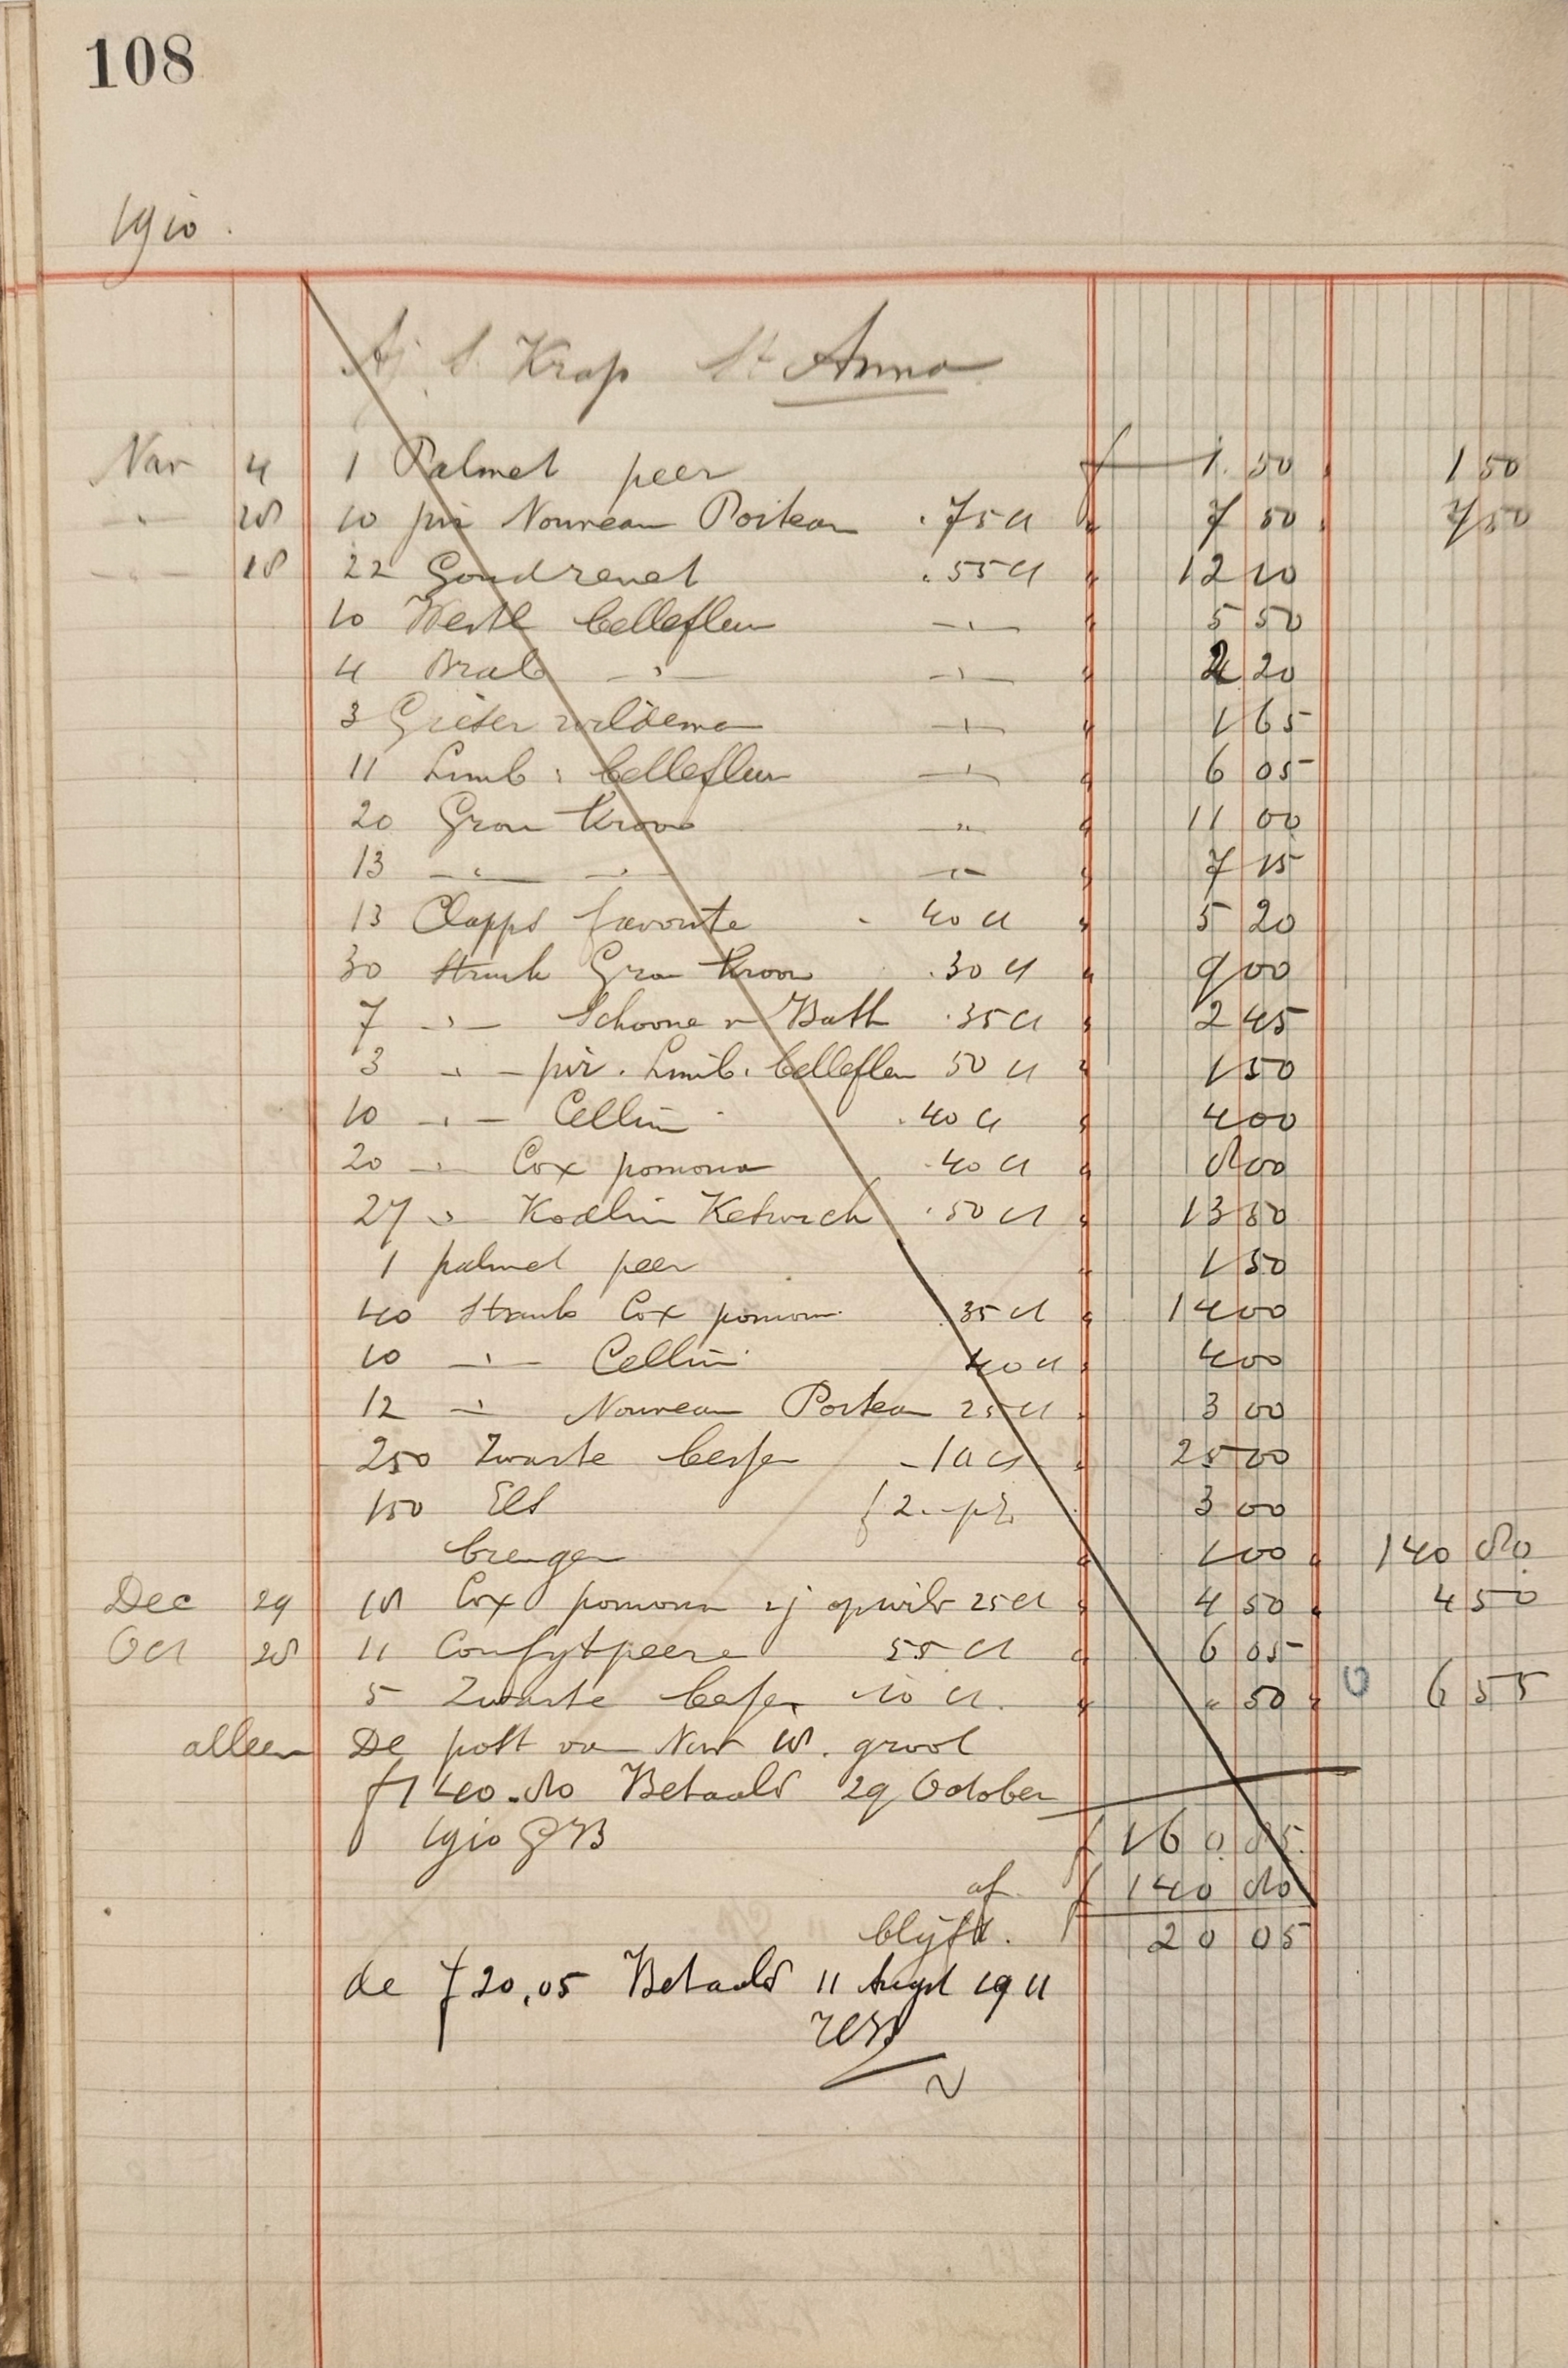 108
1910.
Krap St Anna
Nov 4 1 Palmet peer f 1.50 1 50
" 18 10 pir Nouveau Poiteau . 75 ct " 7 50 7 50
" 18 22 Goudrenet . 55 ct " 12 10
10 Westl bellefleur " " 5 50
4 Brab " " " 2 20
3 Grieser wildeman " " 1 65
11 Limb. bellefleur " " 6 05
20 Gron Kroon " " 11 00
13 " " " 7 15
13 Clapps favorite - 40 ct " 5 20
30 Struik Gron Kroon . 30 ct " 9 00
7 " Schoone v Bath . 35 ct " 2 45
3 " pir. Limb. bellefleu 50 ct " 1 50
10 " Cellini . 40 ct " 4 00
20 " Cox pomona . 40 ct " 8 00
27 " Kodlin Keswich . 50 ct " 13 50
1 palmet peer " 1 50
40 Struik Cox pomon . 35 ct " 14 00
10 " Cellini 40 ct " 4 00
12 " Nouveau Poiteau 25 ct " 3 00
250 Zwarte bessen - 10 ct " 25 00
150 Els f 2.- p% " 3 00
brengen " 1 00 140 80
Dec 29 18 Cox pomona 2j op wild 25 ct " 4 50 4 50
Oct 28 11 Confytpeere 55 ct " 6 05
5 Zwarte bessen 10 ct. " " 50 6 55
alleen De post van Nov 18. groot
f 140.80 Betaald 29 October
1910 GB f 160.85
af f 140 80
blijft. 20 05
de f 20,05 Betaald 11 Augt 1911